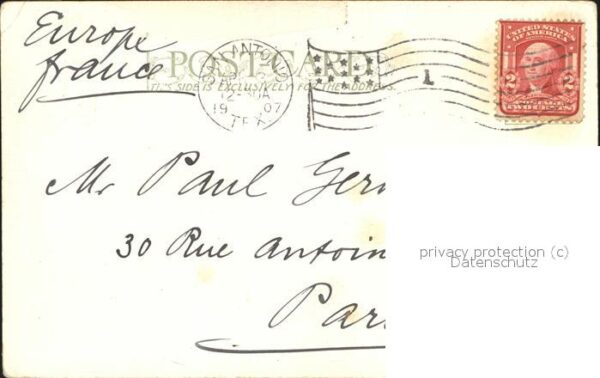 Europe
France
POST CARD
THIS SIDE IS EXCLUSIVELY FOR THE ADDRESS.
SAN ANTONIO
12
19 07
TEX.
1
UNITED STATES
OF AMERICA
2 2
POSTAGE
TWO CENTS
Mr Paul Ger
30 Rue Antoin
Par
privacy protection (c)
Datenschutz